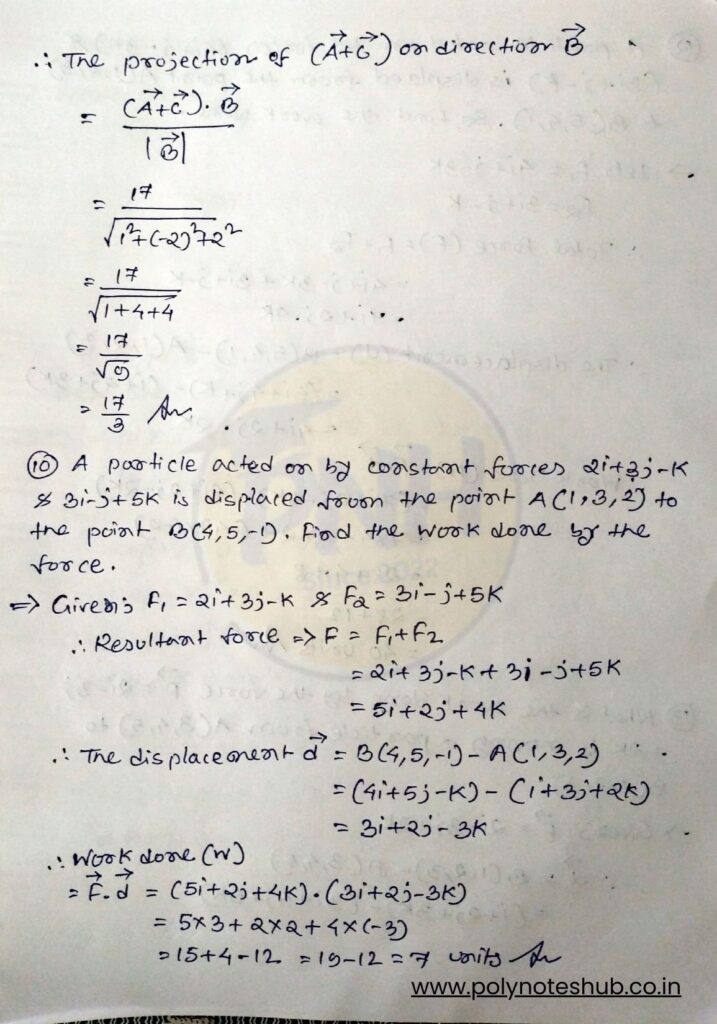 ∴ The projection of (A⃗+C⃗) on direction B⃗
= (A⃗+C⃗). B⃗ / |B⃗|
= 17 / √1²+(-2)²+2²
= 17 / √1+4+4
= 17 / √9
= 17/3 Ans
⑩ A particle acted on by constant forces 2i+3j-K
& 3i-j+5K is displaced from the point A(1,3,2) to
the point B(4,5,-1). Find the work done by the
force.
⇒ Given: F₁ = 2i+3j-K & F₂ = 3i-j+5K
∴ Resultant force => F = F₁+F₂
= 2i+3j-K+3i-j+5K
= 5i+2j+4K
∴ The displacement d⃗ = B(4,5,-1) - A(1,3,2)
= (4i+5j-K) - (i+3j+2K)
= 3i+2j-3K
∴ Work done (W)
= F⃗.d⃗ = (5i+2j+4K).(3i+2j-3K)
= 5×3+2×2+4×(-3)
= 15+4-12 = 19-12 = 7 units Ans
www.polynoteshub.co.in